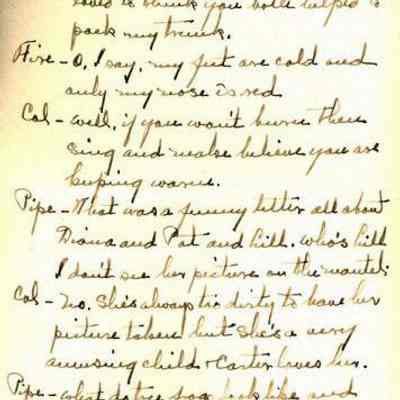 to think you both helped
pack my trunk.
Fire - O, I say, my feet are cold and
only my nose is red
Cal - Well, if you won't burn then
sing and make believe you are
keeping warm.
Pipe - That was a funny letter all about
Diana and Pat and Lill. Who's Lill
I don't see her picture on the mantel.
Cal - No. She's always too dirty to have her
picture taken but she's a very
amusing child & Carter loves her.
Pipe - What does look like and